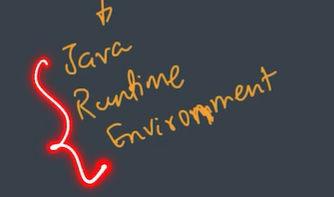 Java
Runtime
Environment